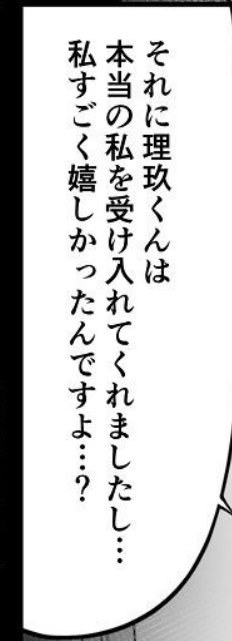 それに理玖くんは
本当の私を受け入れてくれましたし…
私すごく嬉しかったんですよ…？